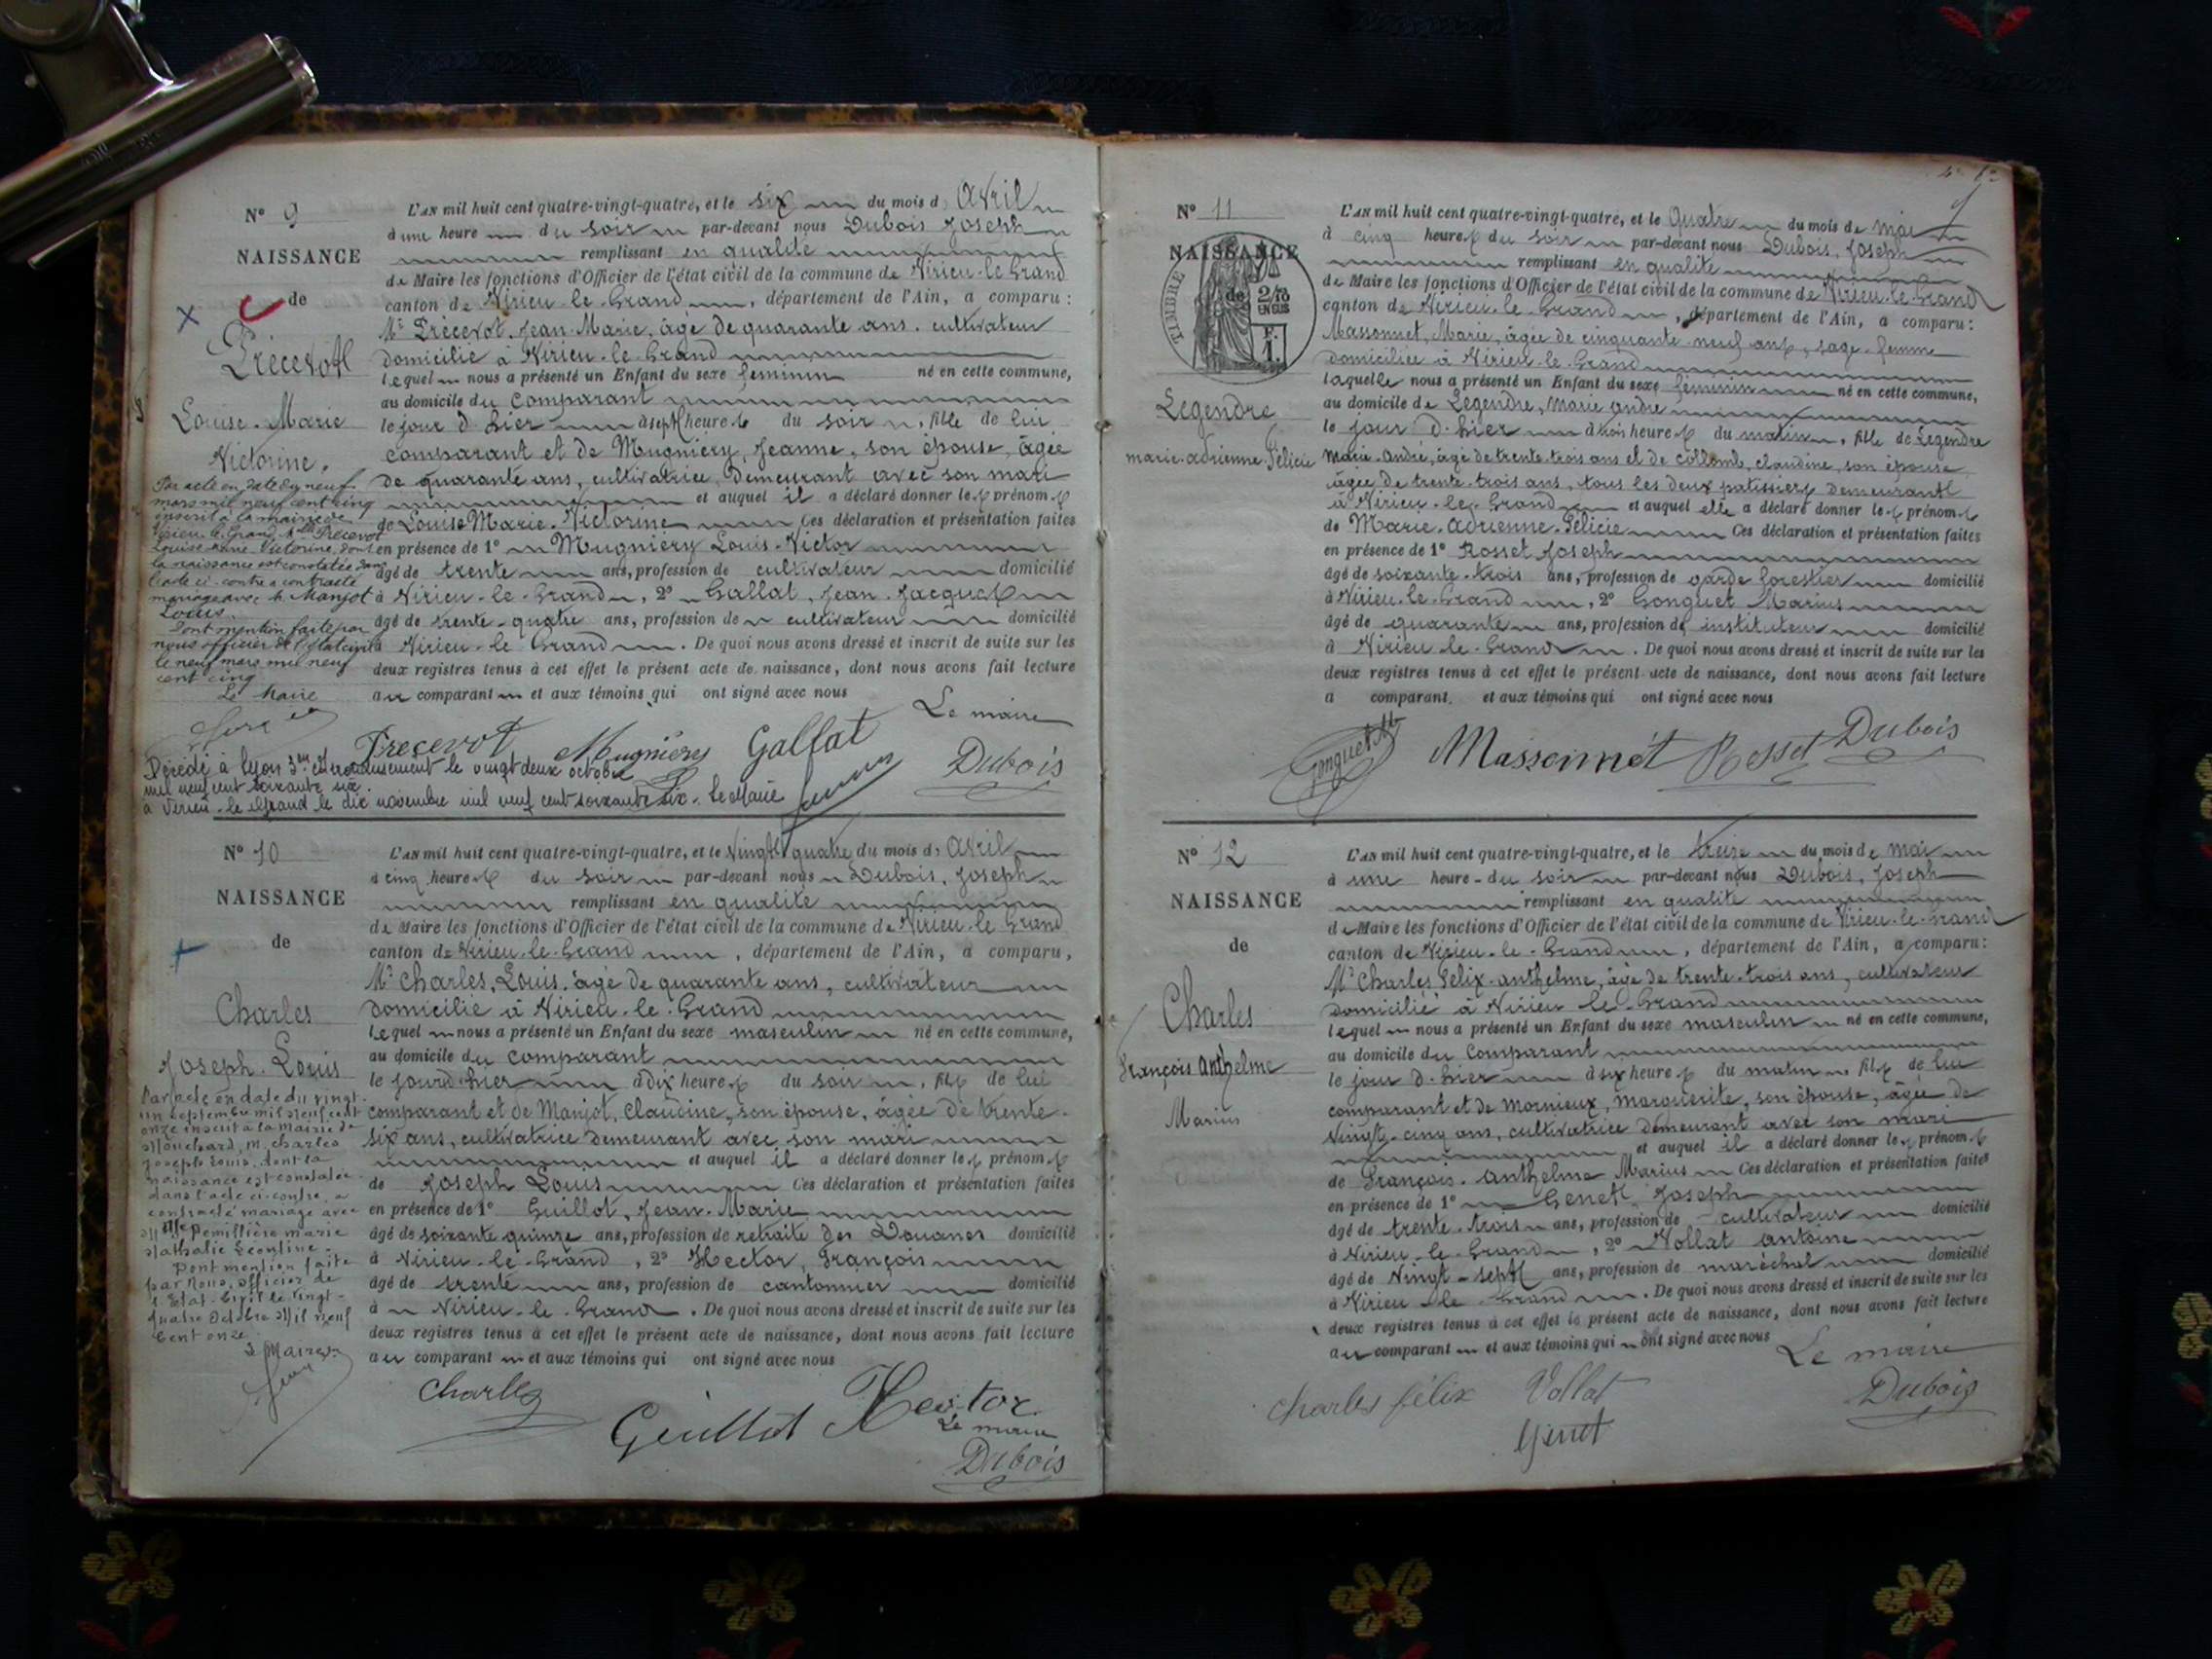 N° 9
NAISSANCE
de
Précevot
Louise-Marie
Victorine.
Par acte en date du neuf
mars mil neuf cent cinq
inscrit à la mairie de
Virieu-le-Grand, Précevot
Louise Marie Victorine, dont
la naissance est constatée dans
l'acte ci-contre a contracté
mariage avec M. Manjot
Louis.
Dont mention faite par
nous officier de l'état civil
le neuf mars mil neuf
cent cinq
Le Maire
L'an mil huit cent quatre-vingt-quatre, et le six du mois d'Avril
à une heure du soir par-devant nous Dubois Joseph
remplissant en qualité
de Maire les fonctions d'Officier de l'état civil de la commune de Virieu-le-Grand
canton de Virieu-le-Grand, département de l'Ain, a comparu :
Mr Précevot, Jean-Marie, âgé de quarante ans, cultivateur
domicilié à Virieu-le-Grand
lequel nous a présenté un Enfant du sexe féminin né en cette commune,
au domicile du comparant
le jour d'hier à sept heures du soir, fille de lui
comparant et de Mugniery, Jeanne, son épouse, âgée
de quarante ans, cultivatrice, demeurant avec son mari
et auquel il a déclaré donner les prénoms
de Louise Marie-Victorine Ces déclaration et présentation faites
en présence de 1° Mugniery Louis-Victor
âgé de trente ans, profession de cultivateur domicilié
à Virieu-le-Grand, 2° Gallat, Jean-Jacques
âgé de trente-quatre ans, profession de cultivateur domicilié
à Virieu-le-Grand. De quoi nous avons dressé et inscrit de suite sur les
deux registres tenus à cet effet le présent acte de naissance, dont nous avons fait lecture
au comparant et aux témoins qui ont signé avec nous
Le maire
Precevot Mugniery Gallat
Dubois
Décédé à Lyon 3me arrondissement le vingt deux octobre
mil neuf cent soixante six.
à Virieu-le-Grand le dix novembre mil neuf cent soixante six. Le Maire
N° 10
NAISSANCE
de
Charles
Joseph-Louis
Par acte en date du vingt-
un septembre mil neuf cent
onze inscrit à la mairie de
Mouchard, M. Charles
Joseph Louis, dont la
naissance est constatée
dans l'acte ci-contre, a
contracté mariage avec
Mlle Marie
Nathalie Léontine.
Dont mention faite
par nous, officier de
l'Etat-Civil le vingt-
quatre Octobre Mil neuf
Cent onze.
Le Maire
L'an mil huit cent quatre-vingt-quatre, et le Vingt quatre du mois d'Avril
à cinq heures du soir par-devant nous Dubois, Joseph
remplissant en qualité
de Maire les fonctions d'Officier de l'état civil de la commune de Virieu-le-Grand
canton de Virieu-le-Grand, département de l'Ain, a comparu,
Mr Charles, Louis, âgé de quarante ans, cultivateur
domicilié à Virieu-le-Grand
lequel nous a présenté un Enfant du sexe masculin né en cette commune,
au domicile du comparant
le jour d'hier à dix heures du soir, fils de lui
comparant et de Manjot, Claudine, son épouse, âgée de trente-
six ans, cultivatrice demeurant avec son mari
et auquel il a déclaré donner les prénoms
de Joseph Louis Ces déclaration et présentation faites
en présence de 1° Guillot, Jean-Marie
âgé de soixante quinze ans, profession de retraité des Douanes domicilié
à Virieu-le-Grand, 2° Hector, François
âgé de trente ans, profession de cantonnier domicilié
à Virieu-le-Grand. De quoi nous avons dressé et inscrit de suite sur les
deux registres tenus à cet effet le présent acte de naissance, dont nous avons fait lecture
au comparant et aux témoins qui ont signé avec nous
Charles Guillot Hector
Le maire
Dubois
N° 11
NAISSANCE
de
TIMBRE
2/10 EN SUS
F.
1.
Legendre
Marie-Adrienne-Félicie
L'an mil huit cent quatre-vingt-quatre, et le Quatre du mois de mai
à cinq heures du soir par-devant nous Dubois, Joseph
remplissant en qualité
de Maire les fonctions d'Officier de l'état civil de la commune de Virieu-le-Grand
canton de Virieu-le-Grand, département de l'Ain, a comparu :
Massonnet, Marie, âgée de cinquante-neuf ans, sage-femme
domiciliée à Virieu-le-Grand
laquelle nous a présenté un Enfant du sexe féminin né en cette commune,
au domicile de Legendre, Marie André
le jour d'hier à trois heures du matin, fille de Legendre
Marie-André, âgé de trente-trois ans et de Collomb, Claudine, son épouse,
âgée de trente-trois ans, tous les deux patissiers demeurant
à Virieu-le-Grand et auquel elle a déclaré donner les prénoms
de Marie-Adrienne-Félicie Ces déclaration et présentation faites
en présence de 1° Rosset Joseph
âgé de soixante-trois ans, profession de garde forestier domicilié
à Virieu-le-Grand, 2° Gonguet Marius
âgé de quarante ans, profession de instituteur domicilié
à Virieu-le-Grand. De quoi nous avons dressé et inscrit de suite sur les
deux registres tenus à cet effet le présent acte de naissance, dont nous avons fait lecture
a comparant et aux témoins qui ont signé avec nous
Gonguet M Massonnet Rosset Dubois
N° 12
NAISSANCE
de
Charles
François Anthelme
Marius
L'an mil huit cent quatre-vingt-quatre, et le treize du mois de mai
à une heure du soir par-devant nous Dubois, Joseph
remplissant en qualité
de Maire les fonctions d'Officier de l'état civil de la commune de Virieu-le-Grand
canton de Virieu-le-Grand, département de l'Ain, a comparu :
Mr Charles Félix-Anthelme, âgé de trente-trois ans, cultivateur
domicilié à Virieu-le-Grand
lequel nous a présenté un Enfant du sexe masculin né en cette commune,
au domicile du comparant
le jour d'hier à six heures du matin, fils de lui
comparant et de Mornieux, Marguerite, son épouse, âgée de
Vingt-cinq ans, cultivatrice demeurant avec son mari
et auquel il a déclaré donner les prénoms
de François-Anthelme Marius Ces déclaration et présentation faites
en présence de 1° Genet, Joseph
âgé de trente-trois ans, profession de cultivateur domicilié
à Virieu-le-Grand, 2° Vollat Antoine
âgé de Vingt-sept ans, profession de maréchal domicilié
à Virieu-le-Grand. De quoi nous avons dressé et inscrit de suite sur les
deux registres tenus à cet effet le présent acte de naissance, dont nous avons fait lecture
au comparant et aux témoins qui ont signé avec nous
Le maire
Charles félix Vollat Dubois
Genet